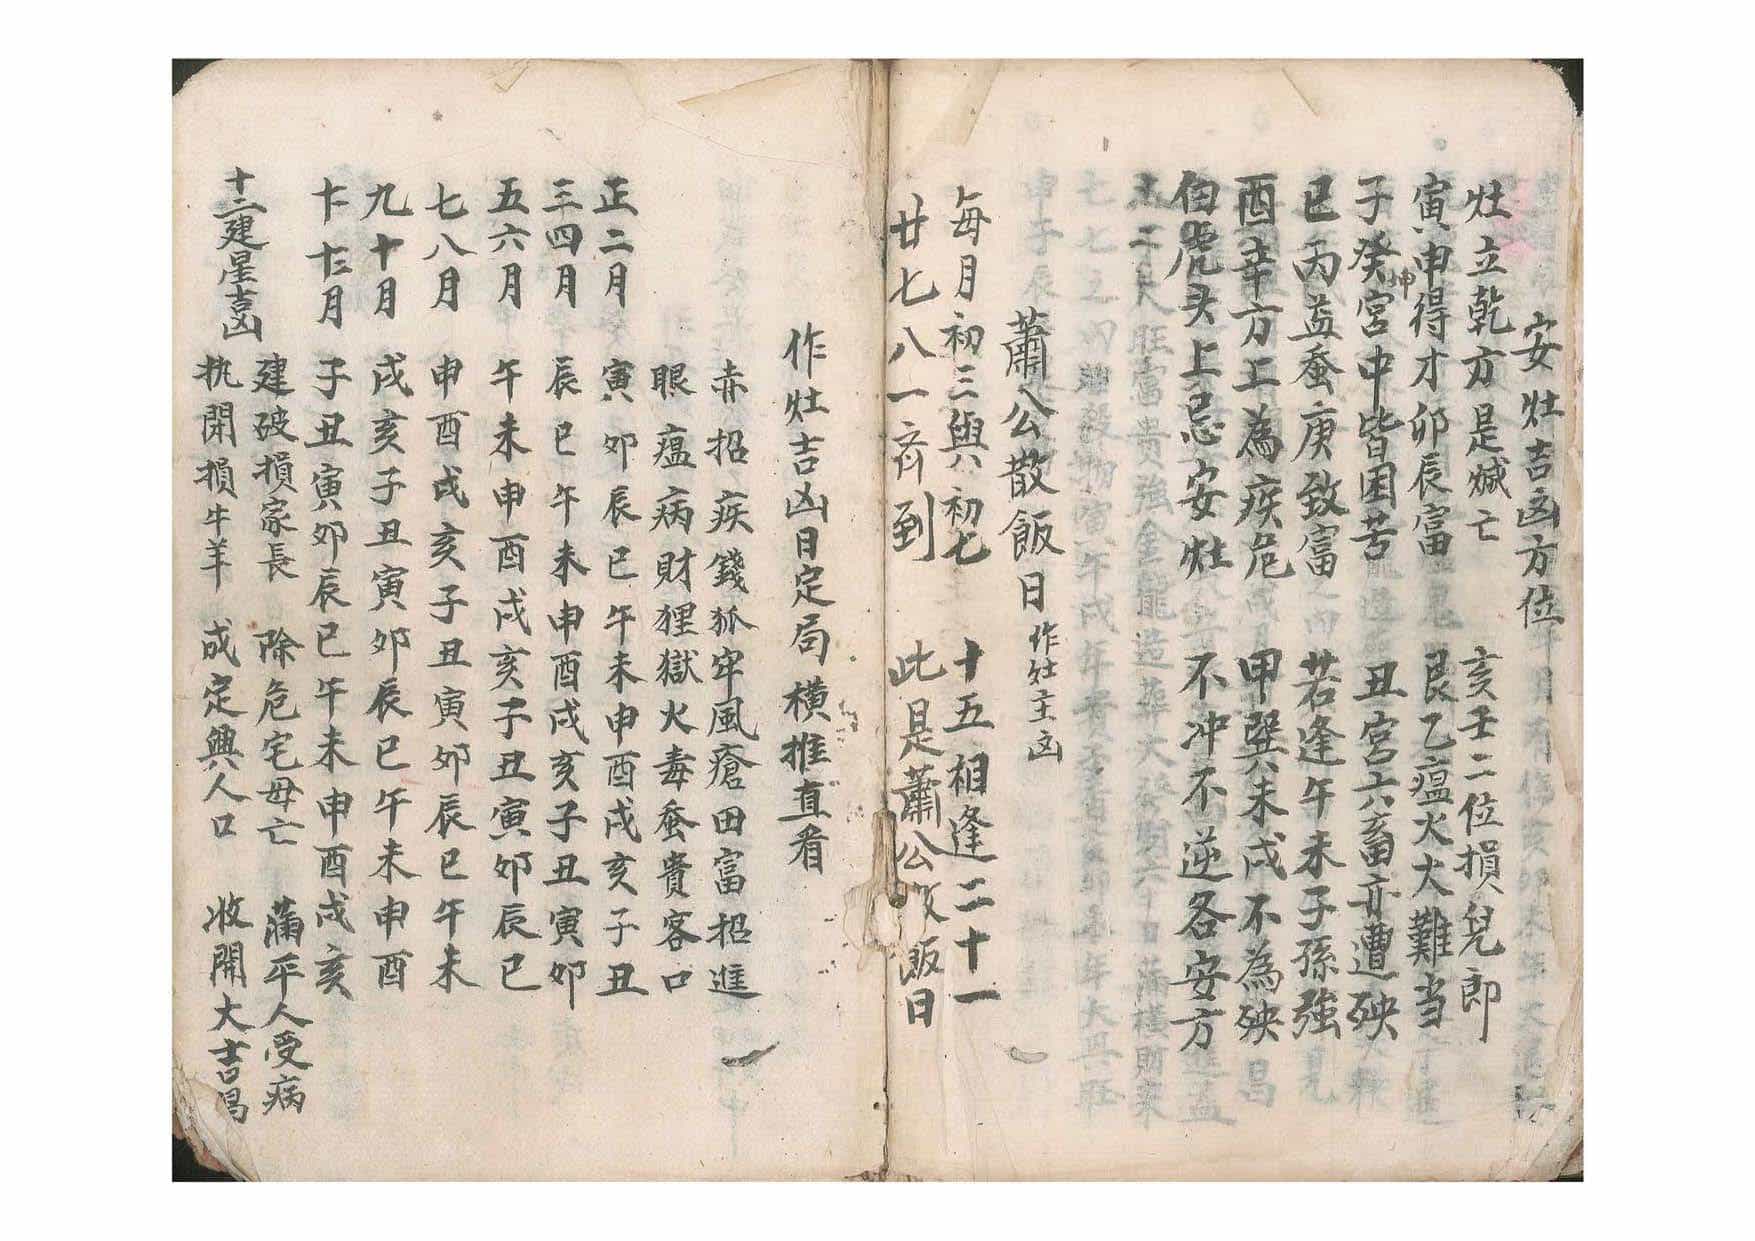 安灶吉凶方位
灶立乾方是滅亡 亥壬二位損兒郎
寅申得才卯辰富 艮乙瘟火大難当
子癸坤宮中皆困苦 丑宮六畜亦遭殃
巳丙益蚕庚致富 若逢午未子孫強
酉辛方工為疾危 甲巽未戌不為殃
白虎头上忌安灶 不冲不逆各安方
蕭公散飯日 作灶主凶
每月初三與初七 十五相逢二十一
廿七八一齐到 此是蕭公飯日
作灶吉凶日定局橫推直看
赤招疾錢狐牢風瘡田富招進
眼瘟病財狸獄火毒蚕貴客口
正二月 寅卯辰巳午未申酉戌亥子丑
三四月 辰巳午未申酉戌亥子丑寅卯
五六月 午未申酉戌亥子丑寅卯辰巳
七八月 申酉戌亥子丑寅卯辰巳午未
九十月 戌亥子丑寅卯辰巳午未申酉
十一十二月 子丑寅卯辰巳午未申酉戌亥
十二建星吉凶 建破損家長 除危宅母亡 蒲平人受病
执閉損牛羊 成定興人口 收開大吉昌